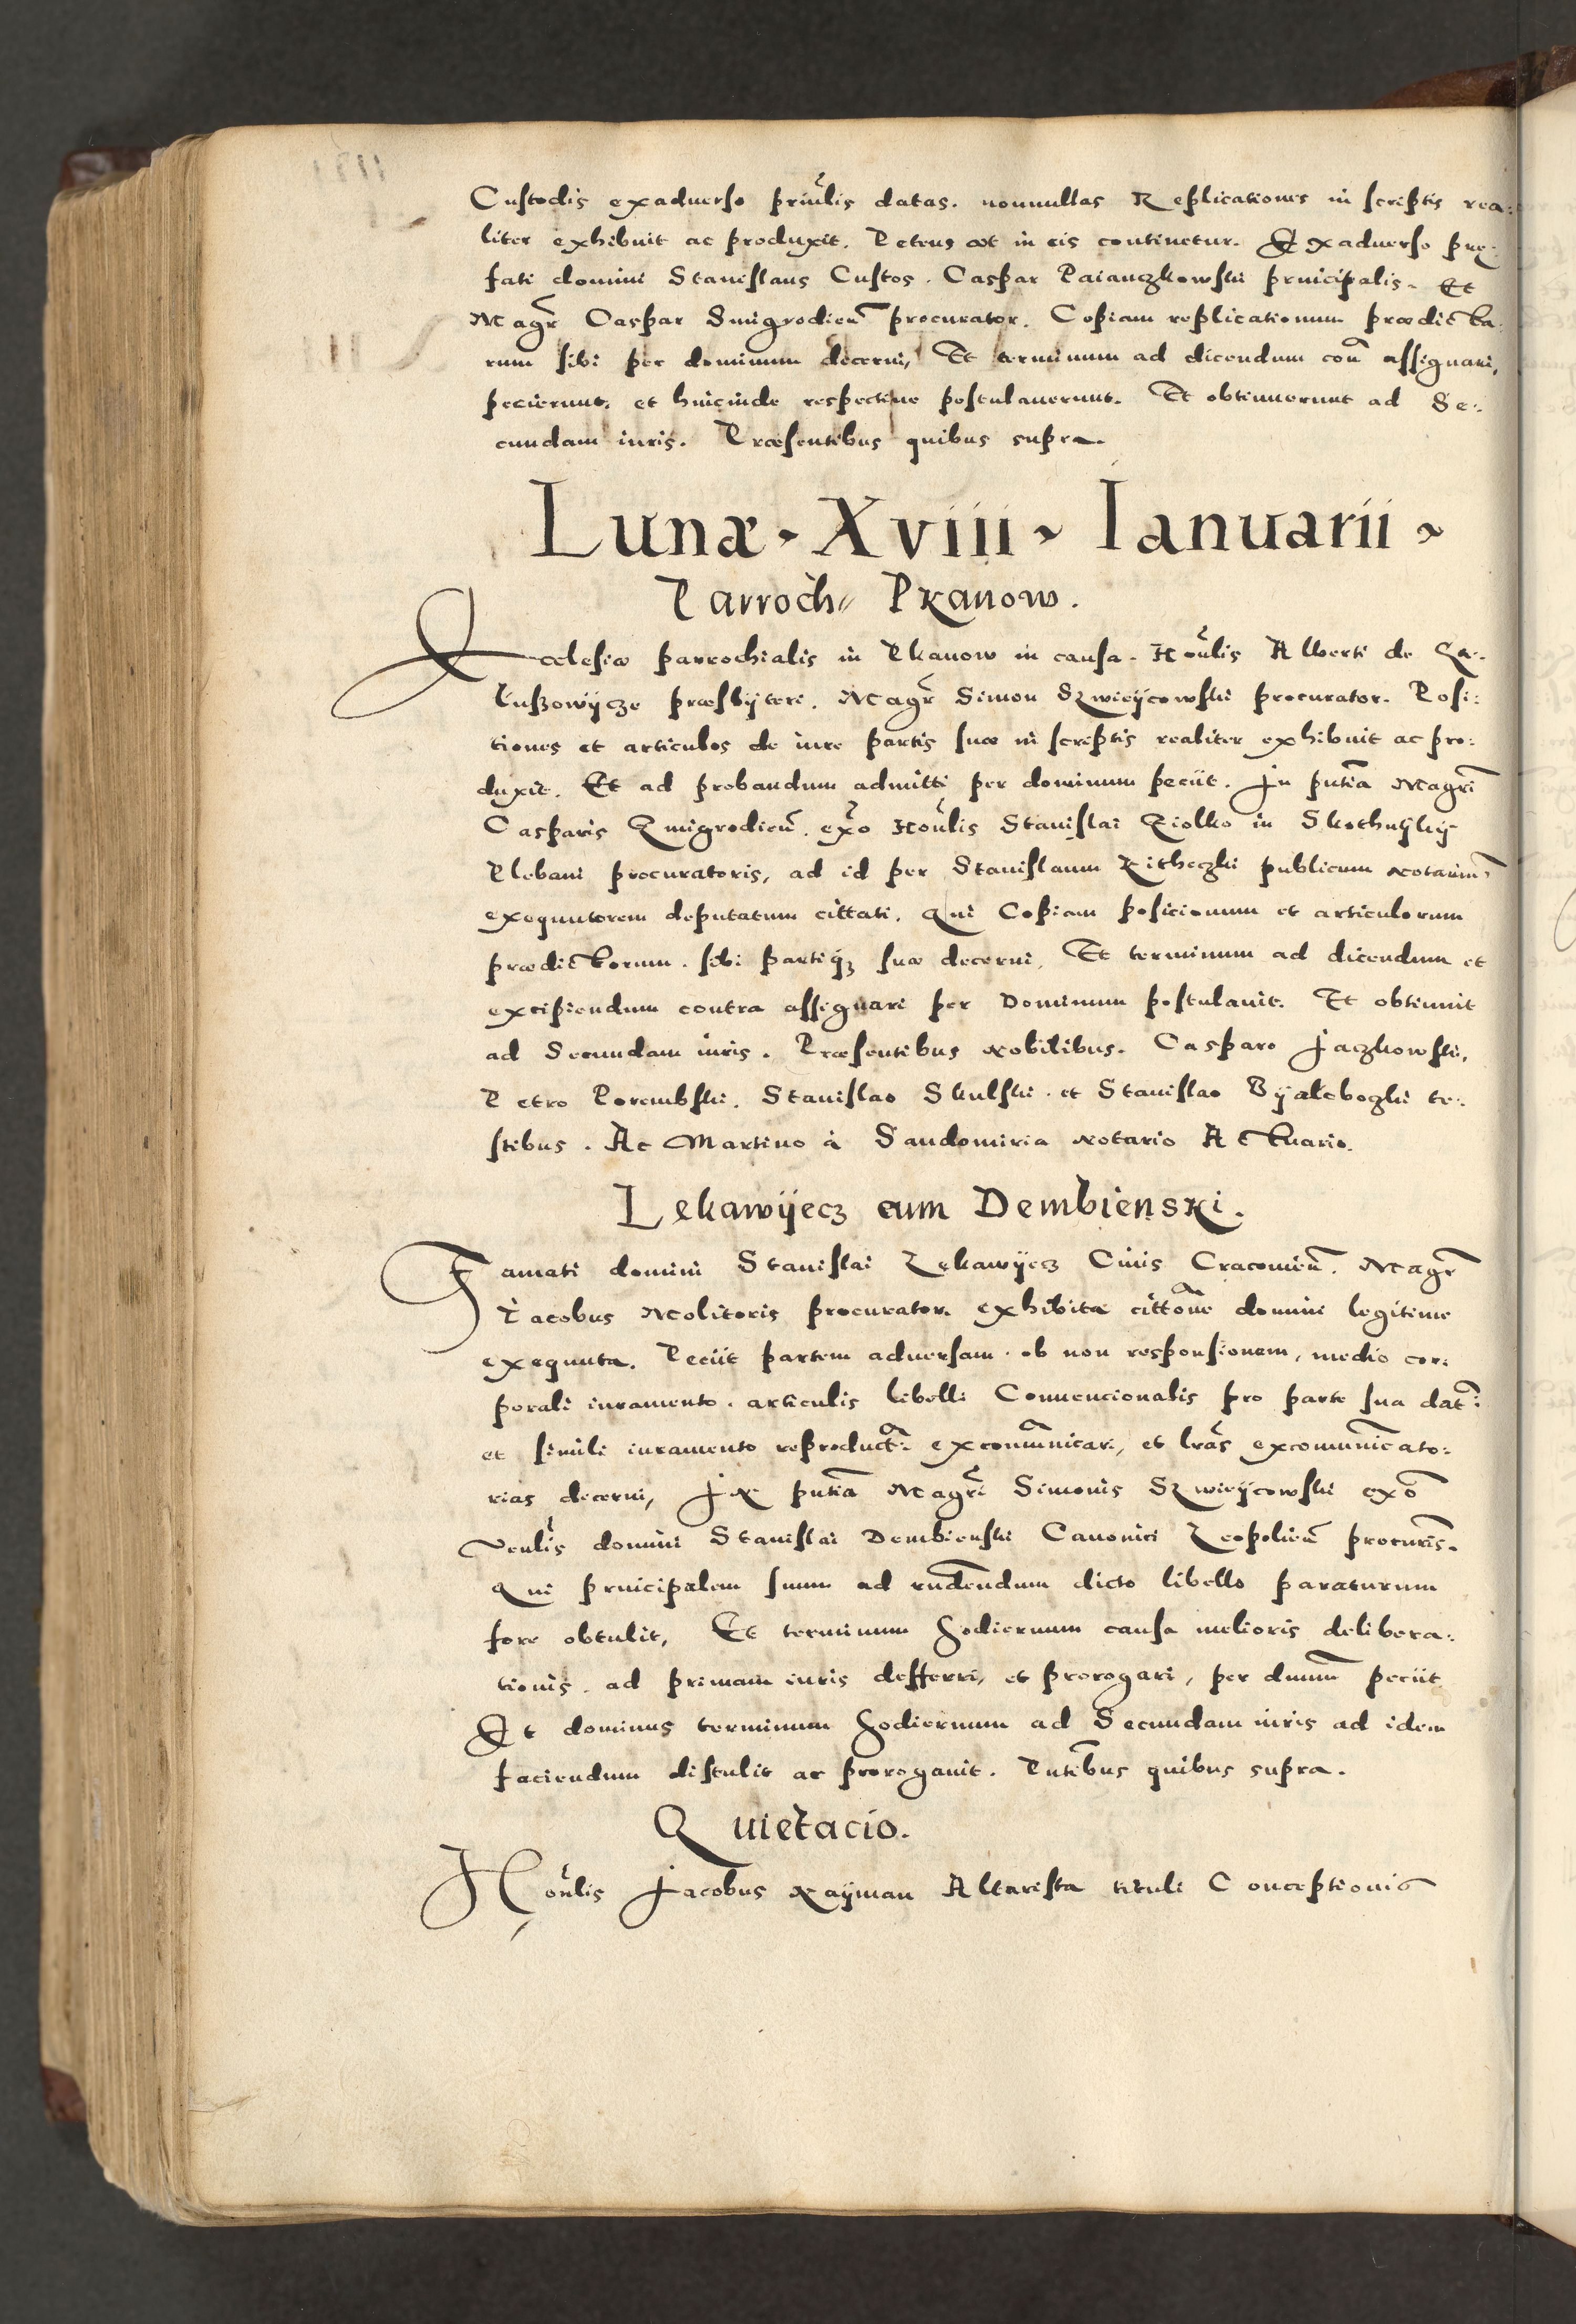 Custodis exaduerso priñlis datas. nonnullas Replicationes in scriptis rea:
liter exhibuit ac produxit. Petens vt in eis continetur. Et exaduerso prę:
fati domini Stanislaus Custos. Caspar Paianczkowski principalis. Et
Magr̃ Caspar Smigrodieñ procurator. Copiam replicationum prædicta:
rum sibi per dominum decerni, Et terminum ad dicendum coñ assignari,
pecierunt. et hincinde respectiue postulauerunt. Et obtinuerunt ad Se:
cundam iuris. Præsentibus quibus supra.
Lunæ. Xviii. Ianuarii.
Parroch// Pkanow.
Ecclesiæ parrochialis in Pkanow in causa. Hoñlis Alberti de
præsbÿteri. Magr̃ Simon Rzwieÿcowski procurator. Posi:
tiones et articulos de iure partis suæ in scriptis realiter exhibuit ac pro:
duxit. Et ad probandum admitti per dominum peciit. In pñtia Magri
Casparis Zmigrodieñ. exõ Hoñlis Stanislai Ziolko in Skothnÿkÿ
Plebani procuratoris, ad id per Stanislaum Kitheczki publicum notarium
exequutorem deputatum cittati. Qui Copiam posicionum et articulorum
prædictorum. sibi partiq3 suæ decerni, Et terminum ad dicendum et
excipiendum contra assignari per Dominum postulauit. Et obtinuit
ad Secundam iuris. Præsentibus nobilibus. Casparo Jaczkowski,
Petro Porembski. Stanislao Skulski. et Stanislao Byalobozki te:
stibus. Ac Martino à Sandomiria notario Actuario.
Lekawÿecz cum Dembienski.
Famati domini Stanislai Lekawÿecz Ciuis Cracouieñ. Magr̃
Iacobus Molitoris procurator. exhibita cittõne domini legitime
exequuta. Peciit partem aduersam. ob non responsionem, medio cor:
porali iuramento. articulis libelli Conuencionalis pro parte sua dat:
et simili iuramento reproduct: excom̃unicari, et lrãs excomunicato:
rias decerni, In pñtia Magri Simonis Rzwieÿcowski exõ
Veñlis domini Stanislai Dembienski Canonici Leopolieñ procuris.
Qui principalem suum ad rñdendum dicto libello paraturum
fore obtulit, Et terminum hodiernum causa melioris delibera:
tionis. ad primam iuris defferri, et prorogari, per dnum peciit
Et dominus terminum hodiernum ad Secundam iuris ad idem
faciendum distulit ac prorogauit. Pñtibus quibus supra.
Quietacio.
Hoñlis Jacobus Nayman Altarista tituli Conceptionis